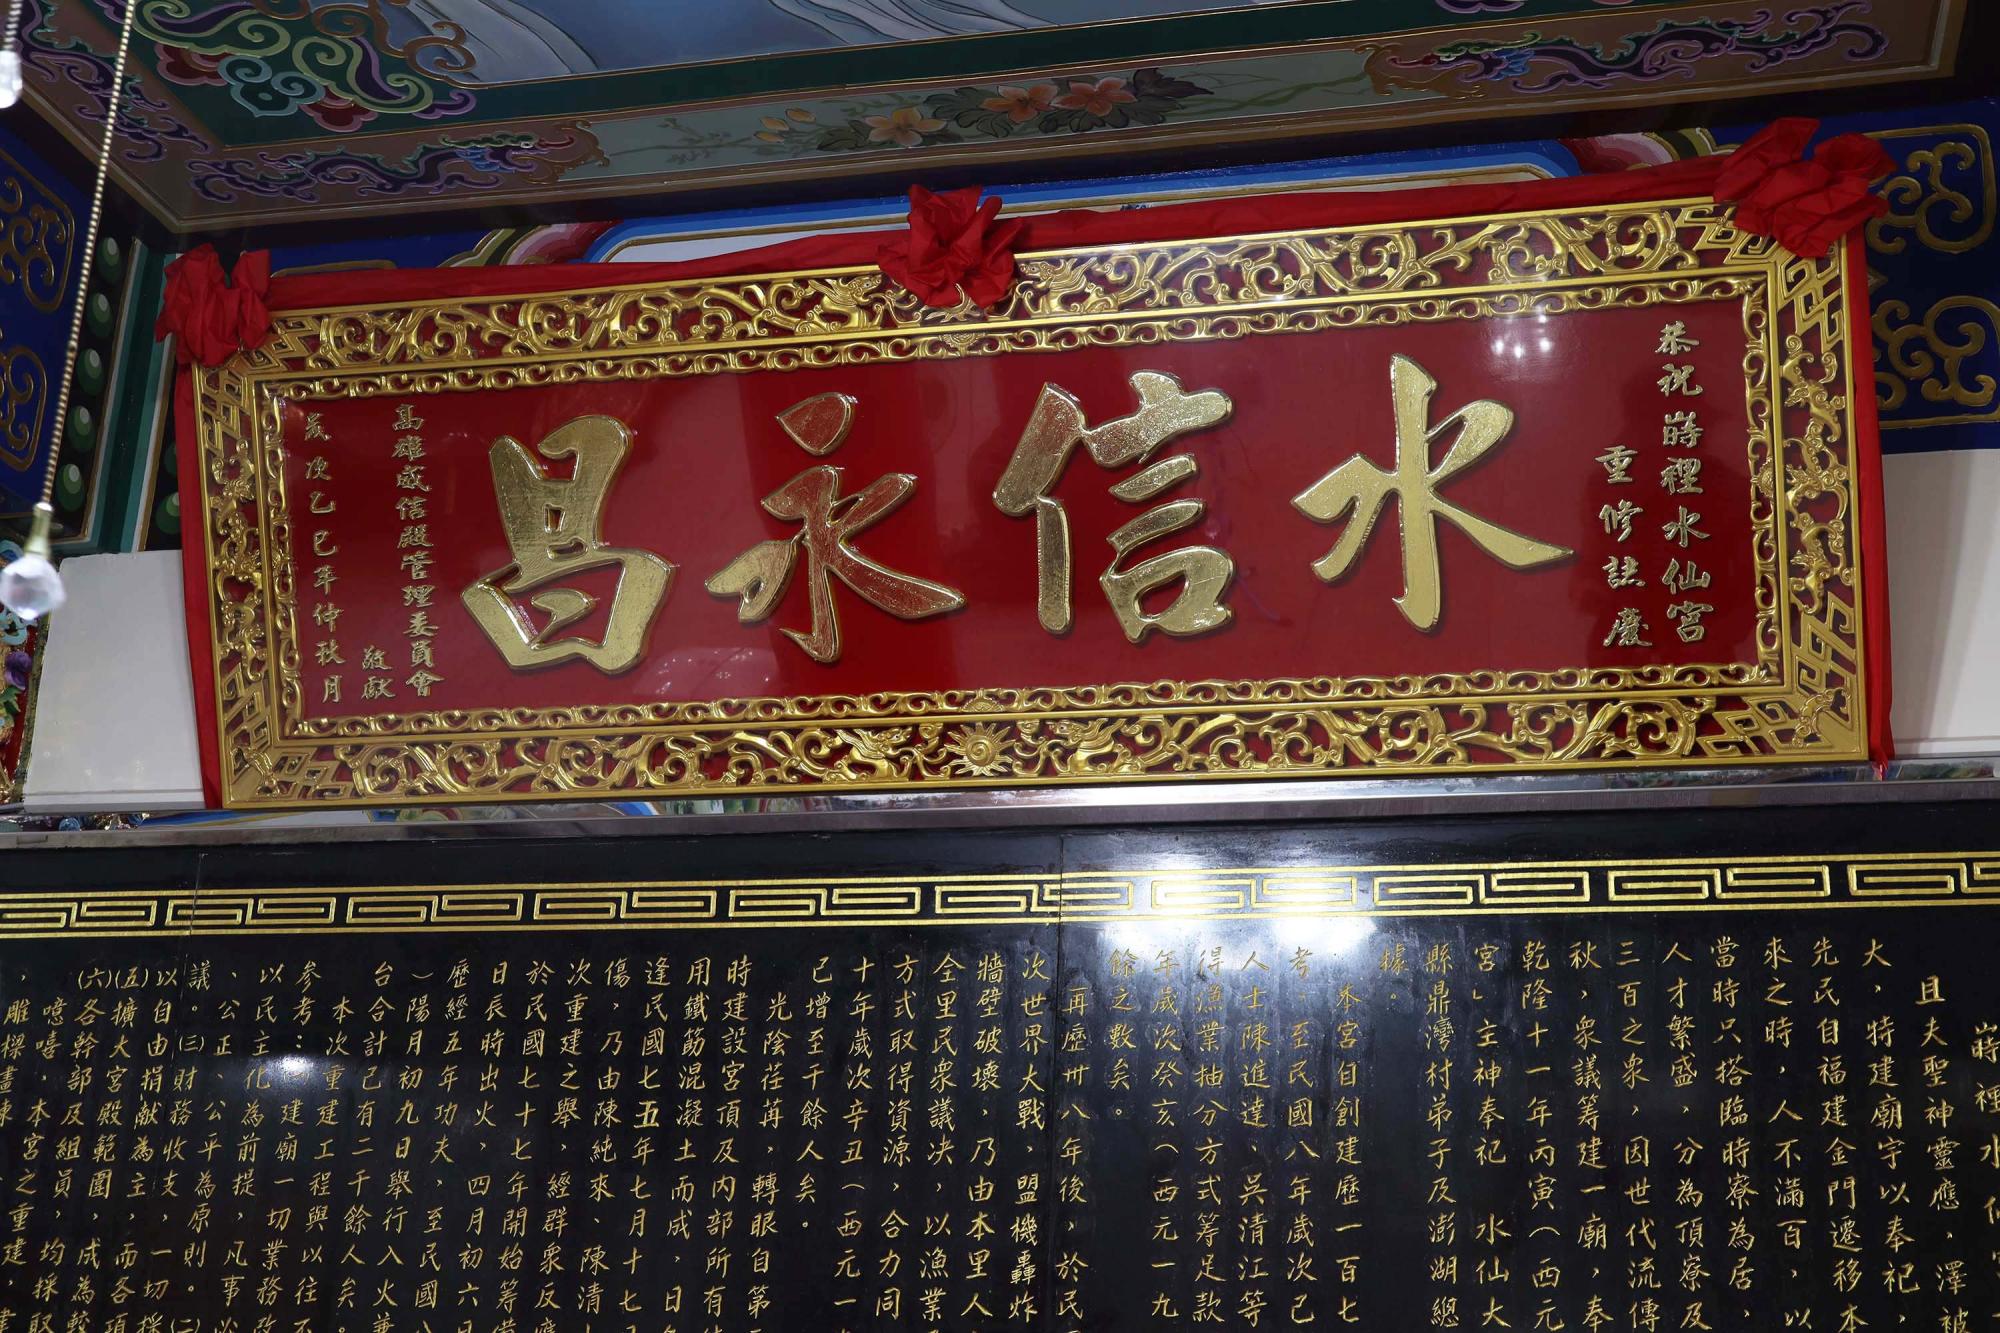 恭祝嵵裡水仙宮
重修誌慶
水信永昌
高雄威信殿管理委員會
敬獻
歲次乙巳年仲秋月
嵵裡水仙宮
且夫聖神靈應，澤被
大，特建廟宇以奉祀，
先民自福建金門遷移本
來之時，人不滿百，以
當時只搭臨時寮為居，
人才繁盛，分為頂寮及
三百之眾，因世代流傳
秋，眾議籌建一廟，奉
乾隆十一年丙寅（西元
宮」主神奉祀 水仙大
縣鼎灣村弟子及澎湖總
據。
本宮自創建歷一百七
考，至民國八年歲次己
人士陳進達、吳清江等
得漁業抽分方式籌足款
年歲次癸亥（西元一九
餘之數矣。
再歷卅八年後，於民
次世界大戰，盟機轟炸
牆壁破壞，乃由本里人
全里民眾議決，以漁業
方式取得資源，合力同
十年歲次辛丑（西元一
已增至千餘人矣。
光陰荏苒，轉眼自第
時建設宮頂及內部所有
用鐵筋混凝土而成，日
逢民國七五年七月十七
傷，乃由陳純來、陳清
次重建之舉，經群眾反應
於民國七十七年開始籌備
日長時出火，四月初六日
歷經五年功夫，至民國八
）陽月初九日舉行入火兼
台合計已有二千餘人矣。
本次重建工程與以往不
參考：建廟一切業務改
以民主化為前提，凡事必
、公正、公平為原則。(二)
議。(三)財務收支，一切採
以自由捐献為主，而各項
(五)擴大宮殿範圍，成為較
(六)各幹部及組員，均採取
噫嘻，本宮之重建，
，雕樑畫棟